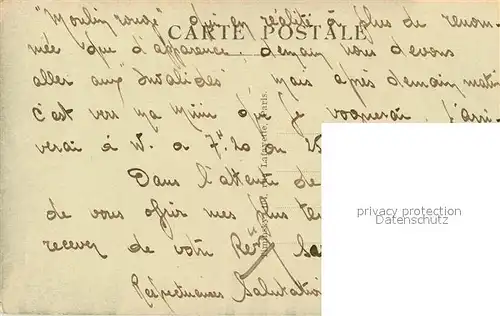 "Moulin rouge" qui en réalité a plus de renom-
CARTE POSTALE
mée que d'apparence, demain nous devons
aller aux "Invalides" mais après demain matin
c'est vers ma Mimi que je voguerai, j'arri-
verai à W. a 7h20 ou 25
Dans l'attente de
de vous offrir mes plus ten
recevez de votre
Respectueuses Salutation
Lafayette, Paris.
privacy protection
Datenschutz